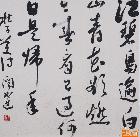 江碧鳥逾白
山青花欲燃
今春看又過何
日是歸年